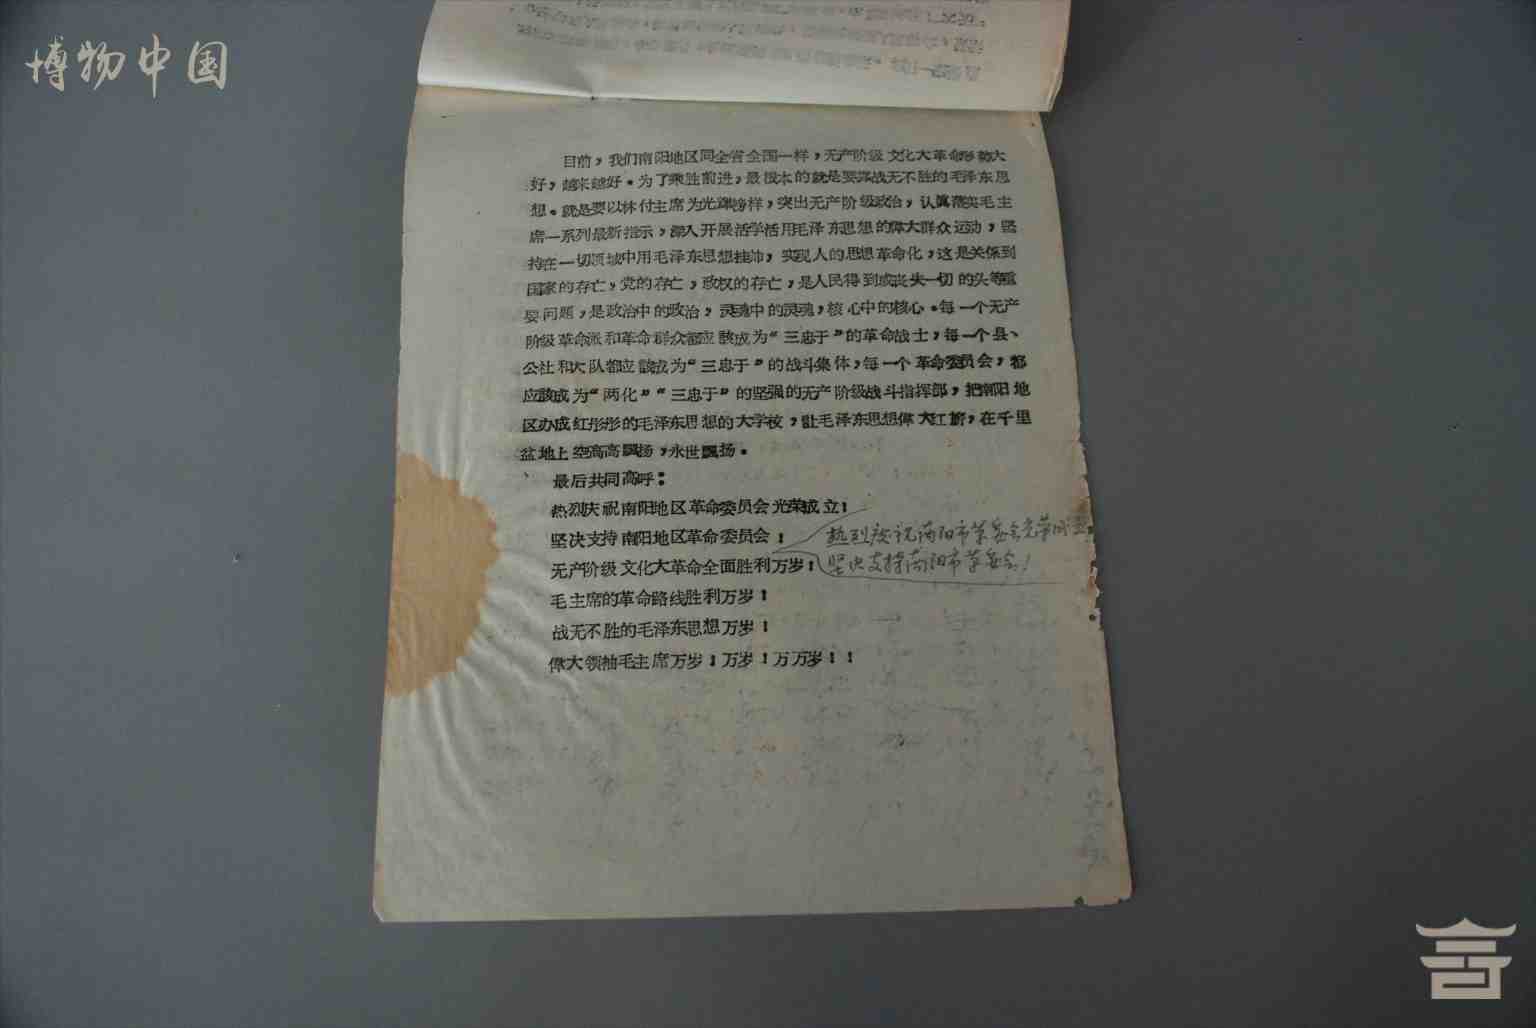 博物中国
目前，我们南阳地区同全省全国一样，无产阶级文化大革命形势大
好，越来越好。为了乘胜前进，最根本的就是要靠战无不胜的毛泽东思
想。就是要以林付主席为光辉榜样，突出无产阶级政治，认真落实毛主
席一系列最新指示，深入开展活学活用毛泽东思想的偉大群众运动，坚
持在一切领域中用毛泽东思想挂帅，实现人的思想革命化，这是关係到
国家的存亡，党的存亡，政权的存亡，是人民得到或丧失一切的头等重
要问题，是政治中的政治，灵魂中的灵魂，核心中的核心。每一个无产
阶级革命派和革命群众都应該成为“三忠于”的革命战士，每一个县、
公社和大队都应該成为“三忠于”的战斗集体，每一个革命委员会，都
应該成为“两化”“三忠于”的坚强的无产阶级战斗指挥部，把南阳地
区办成红彤彤的毛泽东思想的大学校，让毛泽东思想偉大红旗，在千里
盆地上空高高飘扬，永世飘扬。
最后共同高呼：
热烈庆祝南阳地区革命委员会光荣成立！
坚决支持南阳地区革命委员会！
热烈庆祝南阳市革委会光荣成立
坚决支持南阳市革委会！
无产阶级文化大革命全面胜利万岁！
毛主席的革命路线胜利万岁！
战无不胜的毛泽东思想万岁！
偉大领袖毛主席万岁！万岁！万万岁！！